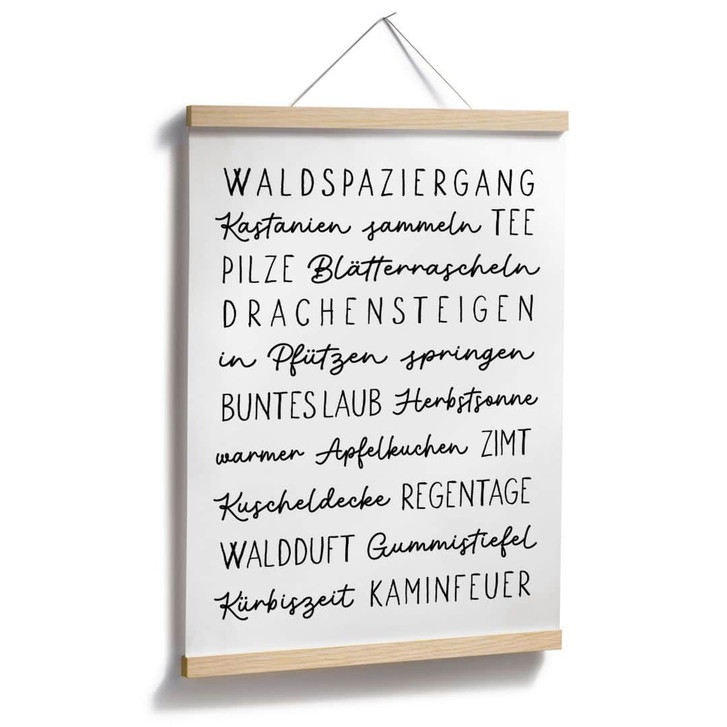 WALDSPAZIERGANG
Kastanien sammeln TEE
PILZE Blätterrascheln
DRACHENSTEIGEN
in Pfützen springen
BUNTES LAUB Herbstsonne
warmer Apfelkuchen ZIMT
Kuscheldecke REGENTAGE
WALDDUFT Gummistiefel
Kürbiszeit KAMINFEUER